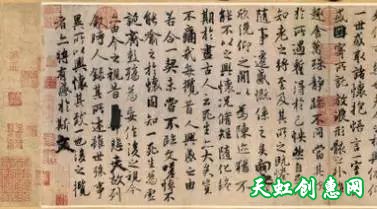 一世或取諸懷抱悟言一室
或因寄所託放浪形骸之外
趣舍萬殊靜躁不同當其欣
於所遇蹔得於己怏然自足
知老之將至及其所之既惓
隨事遷感慨係之矣向之所
欣俛仰之閒以為陳迹猶不
能不以之興懷況脩短隨化終
期於盡古人云死生亦大矣豈
不痛哉每攬昔人興感之由
若合一契未嘗不臨文嗟悼不
能喻之於懷固知一死生為虛
誕齊彭殤為妄作後之視今
亦由今之視昔悲夫故列
敘時人錄其所述雖世殊事
異所以興懷其致一也後之攬
者亦將有感於斯文
天虹创意网